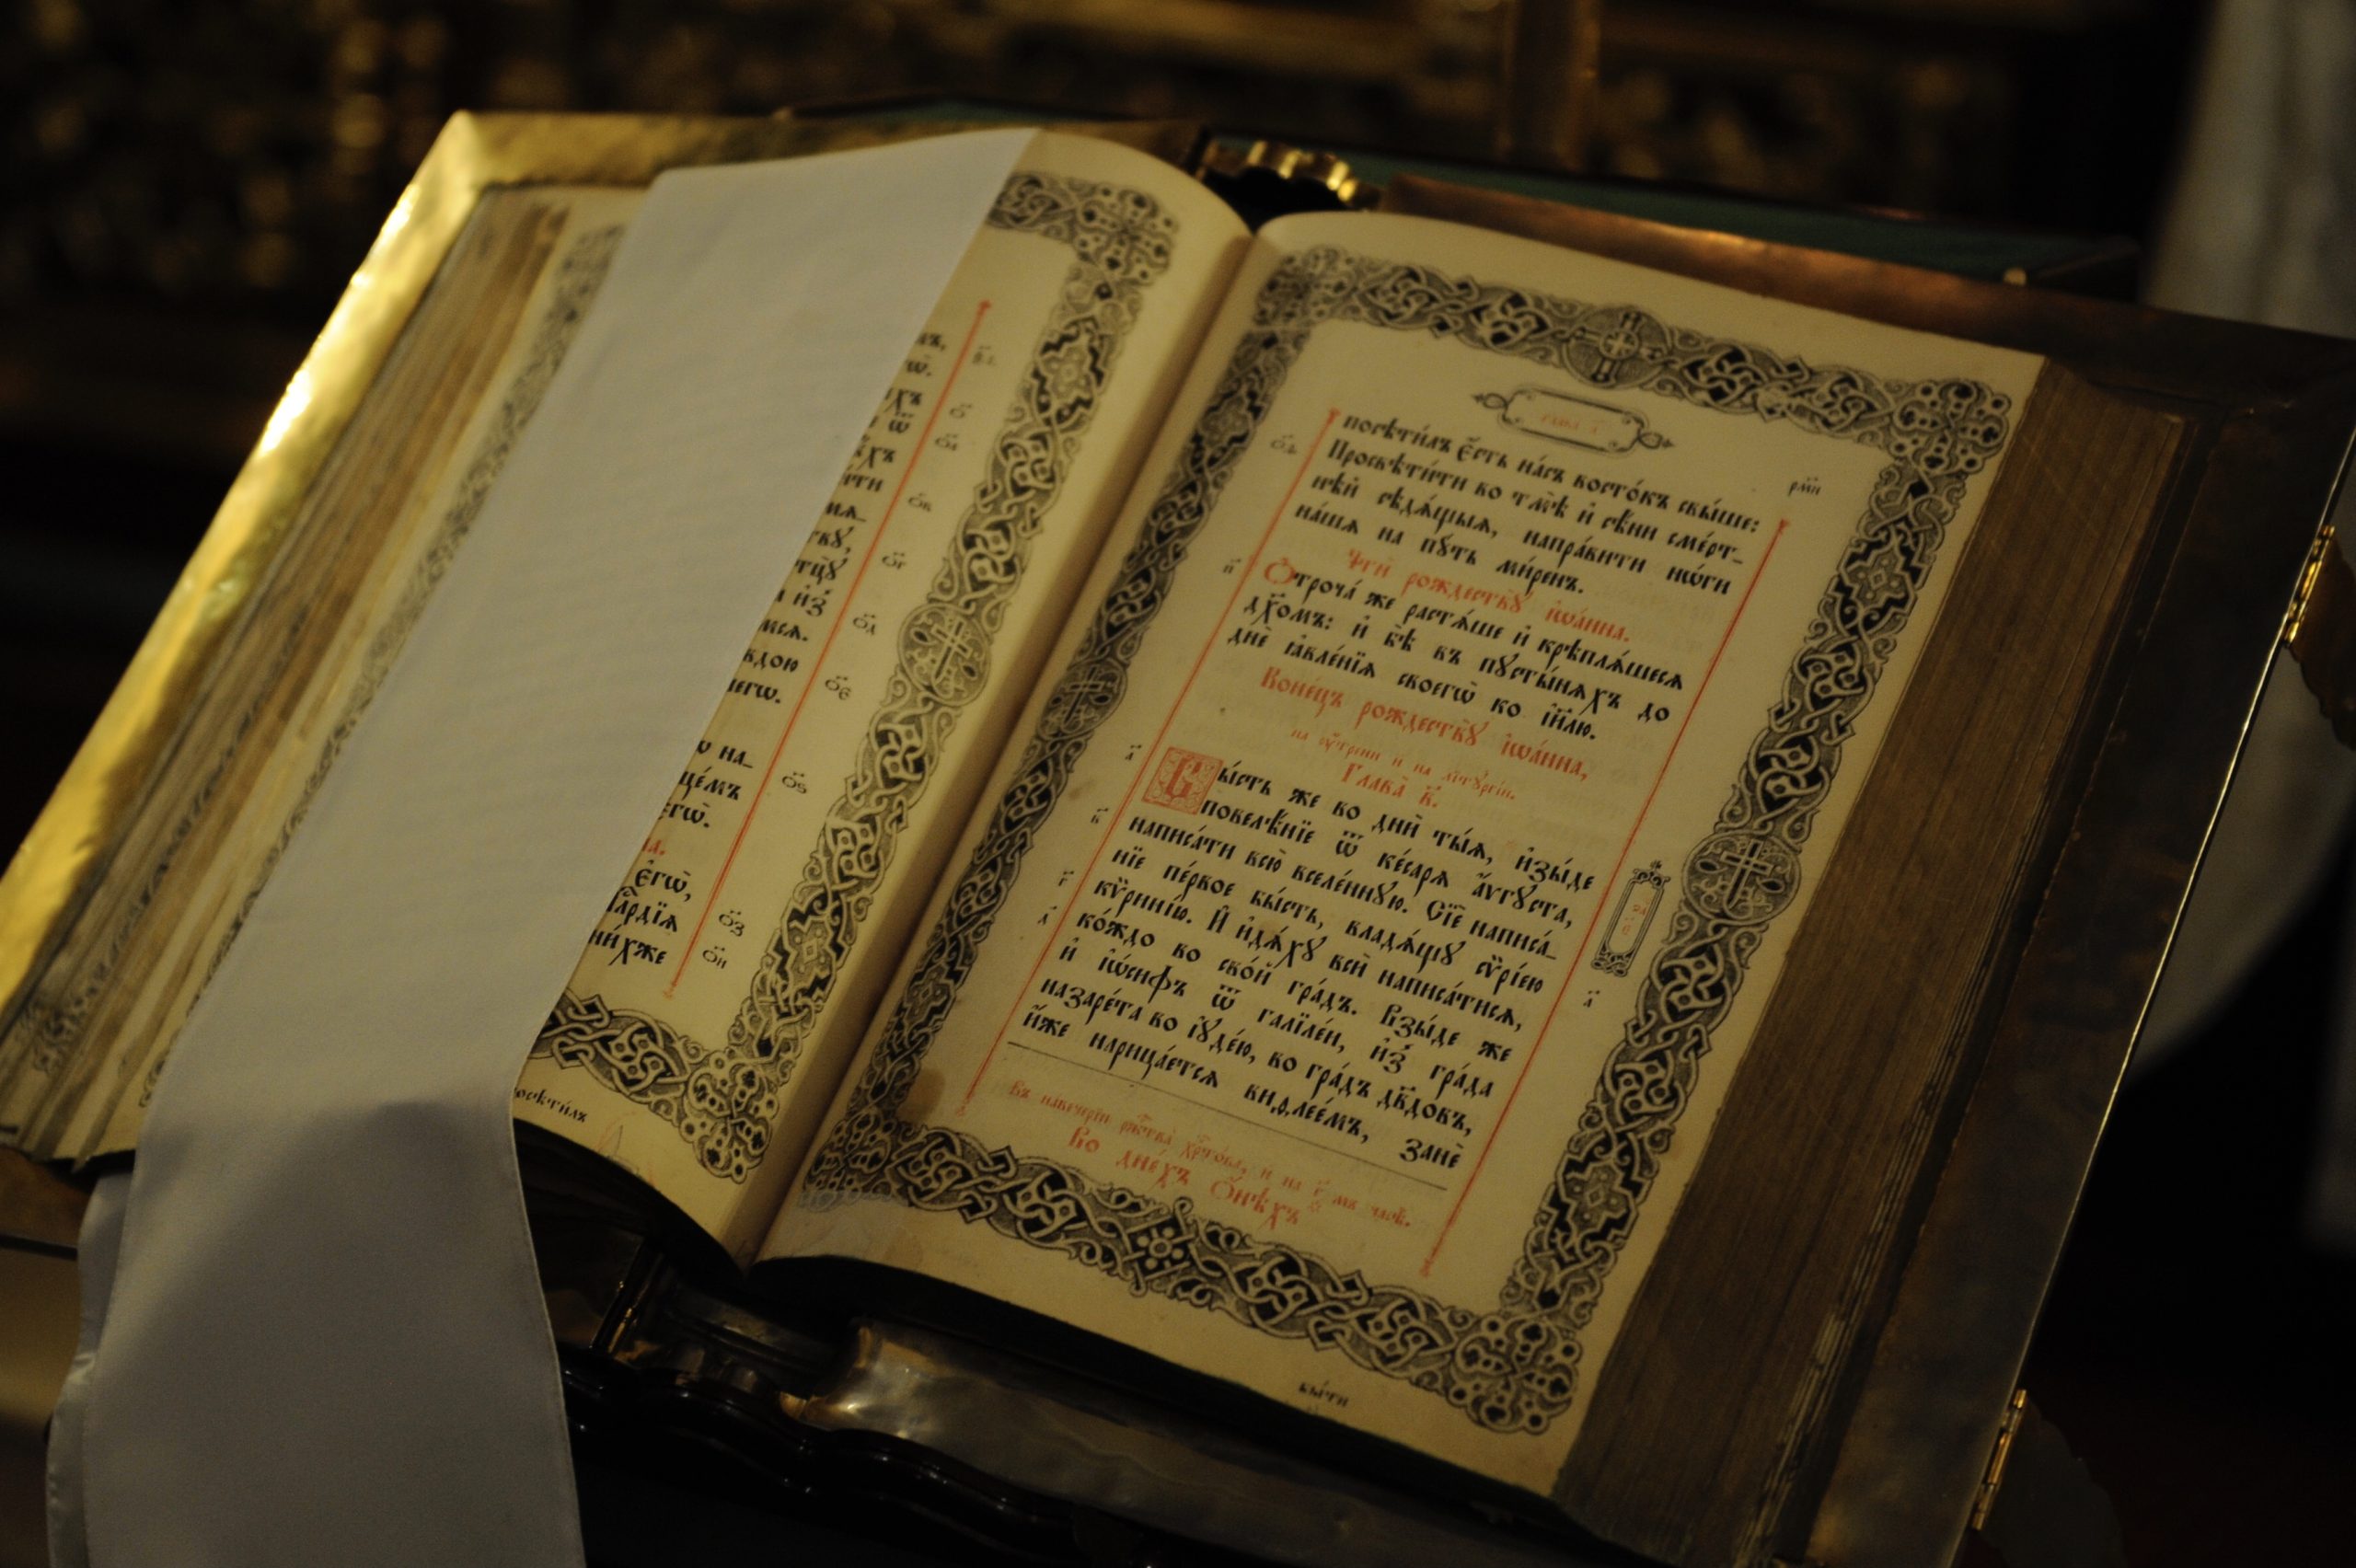 ъ,
ѡ҃.
ꙋхъ
ѿ
ѣхъ
ѧти
мѧ-
твꙋ̀,
тцꙋ̀
и҆з̾
мсѧ.
ждою
негѡ̀.
на-
щемъ
егѡ̀.
є҆гѡ̀,
сердїѧ
ни́хже
посѣти́лъ
глава̀ а҃
рми
посѣти́лъ є҆́сть на́съ восто́къ свы́ше:
Просвѣти́ти во тмѣ̀ и҆ сѣ́ни сме́рт-
нѣй сѣдѧ́щыѧ, напра́вити но́ги
на́шѧ на пꙋ́ть ми́ренъ.
Чтѝ рождествꙋ̀ і҆ѡа́нна.
Ѻ҆троча́ же растѧ́ше и҆ крѣплѧ́шесѧ
дх҃омъ: и҆ бѣ̀ въ пꙋсты́нѧхъ до
днѐ ꙗ҆вле́нїѧ своегѡ̀ ко і҆и҃лю.
Коне́цъ рождествꙋ̀ і҆ѡа́нна,
на ᲂу҆́трени и на літꙋргі́и.
Глава̀ в҃.
Бы́сть же во дни̑ ты̑ѧ, и҆зы́де
повелѣ́нїе ѿ ке́сарѧ а҆́ѵгꙋста,
написа́ти всю̀ вселе́ннꙋю. Сїѐ написа́-
нїе пе́рвое бы́сть, владѧ́щꙋ сѷрі́ею
кѷри́нїю. И҆ и҆дѧ́хꙋ всѝ написа́тисѧ,
ко́ждо во сво́й гра́дъ. Взы́де же
и҆ і҆ѡ́сифъ ѿ галїле́и, и҆з̾ гра́да
назаре́та во і҆ꙋде́ю, во гра́дъ дв҃довъ,
и҆́же нарица́етсѧ виѳлее́мъ, занѐ
Въ навечерїи ржⷭ҇тва̀ хрⷭ҇то́ва, и на
Во дне́хъ ѻ҆́нѣхъ
бы́ти